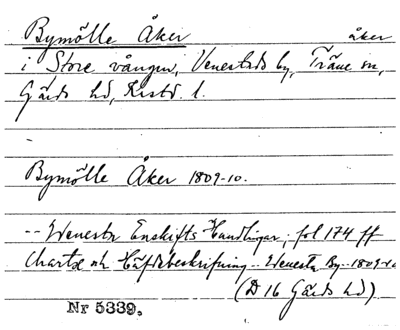 Bymölle Åker åker
i Store vången, Venestads by, Träne sn,
Gärds hd, Krist. l.
Bymölle Åker 1809-10.
-- Wenesta Enskifts Handlingar, fol 174 ff
Charta och Häfdebeskrifning -- Wenesta By -- 1809-10
(D 16 Gärds hd)
Nr 5339.